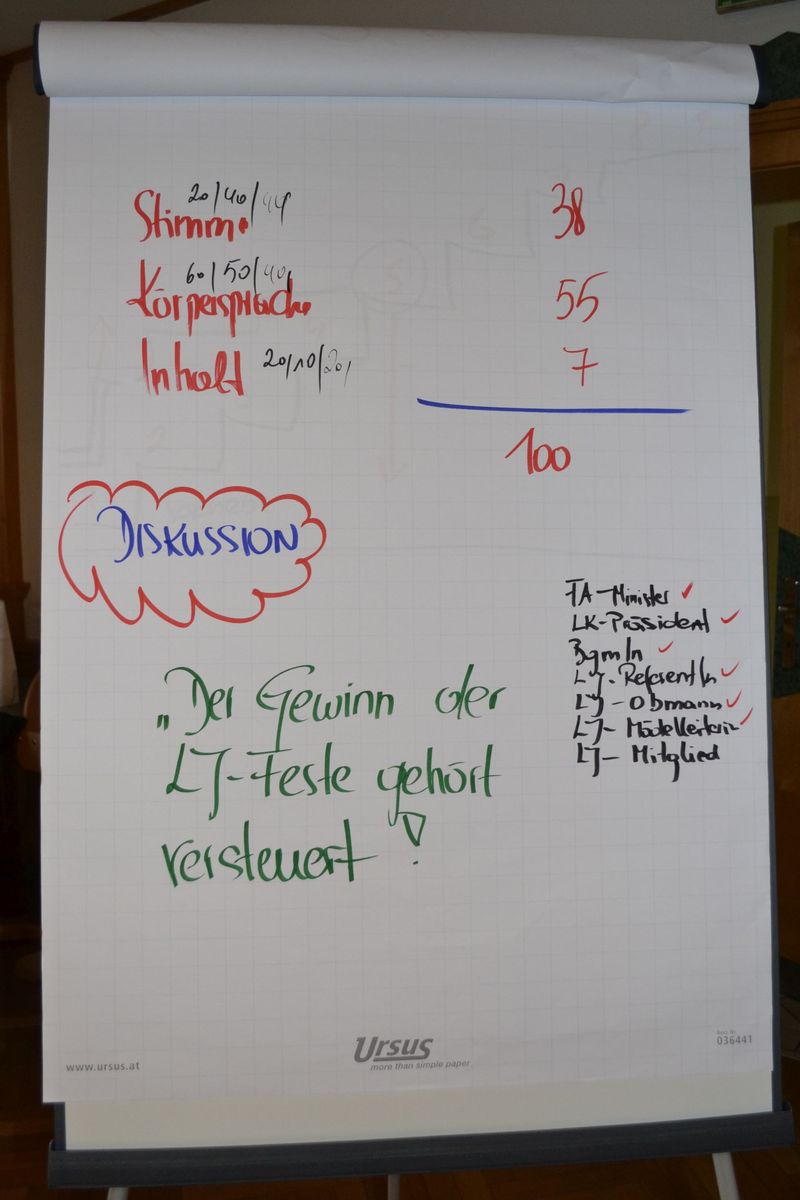 20/40/44
Stimme 38
60/50/40,
Körpersprache 55
Inhalt 20/10/20, 7
100
DISKUSSION
FA-Minister ✓
LK-Präsident ✓
BgmIn ✓
LJ-ReferentIn ✓
LJ-Obmann ✓
LJ- Mädelleiterin ✓
LJ- Mitglied
„Der Gewinn der
LJ-Feste gehört
versteuert !
www.ursus.at
Ursus
more than simple paper
Best. Nr.
036441